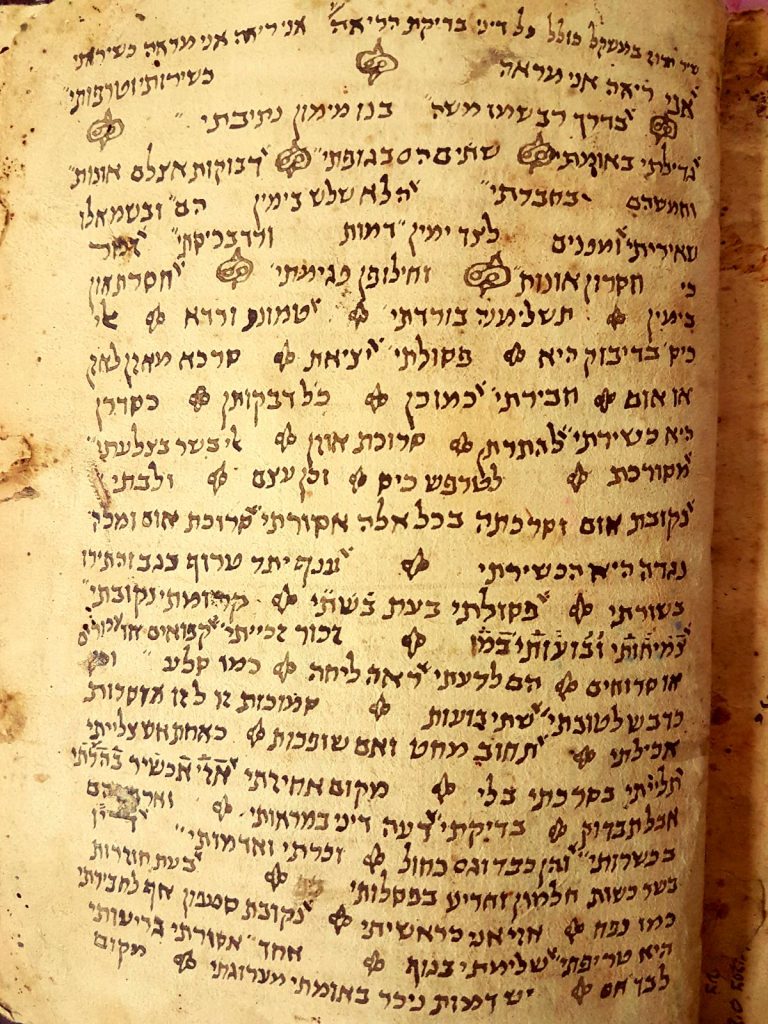 שיר תיקון במשקל כולל כל דיני בדיקת הריאה אני ריאה אני מראה כשיראני
אני ריאה אני מראה כשירותי וטרפותי
בדרך רב שמו משה בנו מימון נתיבתי
גדילתי באומתי שתים הם בגופתי דבוקות אצלם אונות
וחמשהם בחברתי הלא שלש בימין הם ובשמאלו
שאיריתי ומפנים לצד ימין דמות ורד בריסתי
כי חסרון אונות וחילופן פגימתי חסרת און
בימין תשלימנה בורדתי טמונת ורדא אי
כיס בדיבוק היא פסולתי יציאת סרכא מאון לאון
או אום חבירתי כמו כן כל דבקותן כסדרן
היא כשירתי להתרת סרוכת אוזן אי בשר בצלעתי
מסורכת לטרפש כיס וכן עצם ולבתי
נקובת אום וסרכתה בכל אלה אסורתי סרוכת אום ומכה
נגדה היא הכשירתי ענף יתר טרוף בגב וכתירו
בשורתי פסולתי בעת בשתי קרומתי נקובתי
צמיחותי ובועותי במו זכור זכייתי קפואים או עכורים
או סרוחים הם לדעתי ראה ליחה כמו סלע
כדבש לטובתי שתי בועות סמוכות זו לזו אוסרות
אכילתי תחוב מחט ואם שופכות כאחת אש צלייתי
תליתי בסרכתי בלי מקום אחיזתי אזי אכשיר
אבל תבדוק בדיקתי דעה דיני במראותי
בכשרותי והן כבד וגם כחול זכרתי ואדמותי
בשר כשות חלמון וחריע בפסלותי בעת חוזרות
כמו נפח אזי אני כראשיתי נקובת סמפון אף לחבירתי
היא טריפתי שלימתי בגוף אחד אסורתי בריעותי
לבד הם יש דמות ניכר באומתי מערוגתי מקום